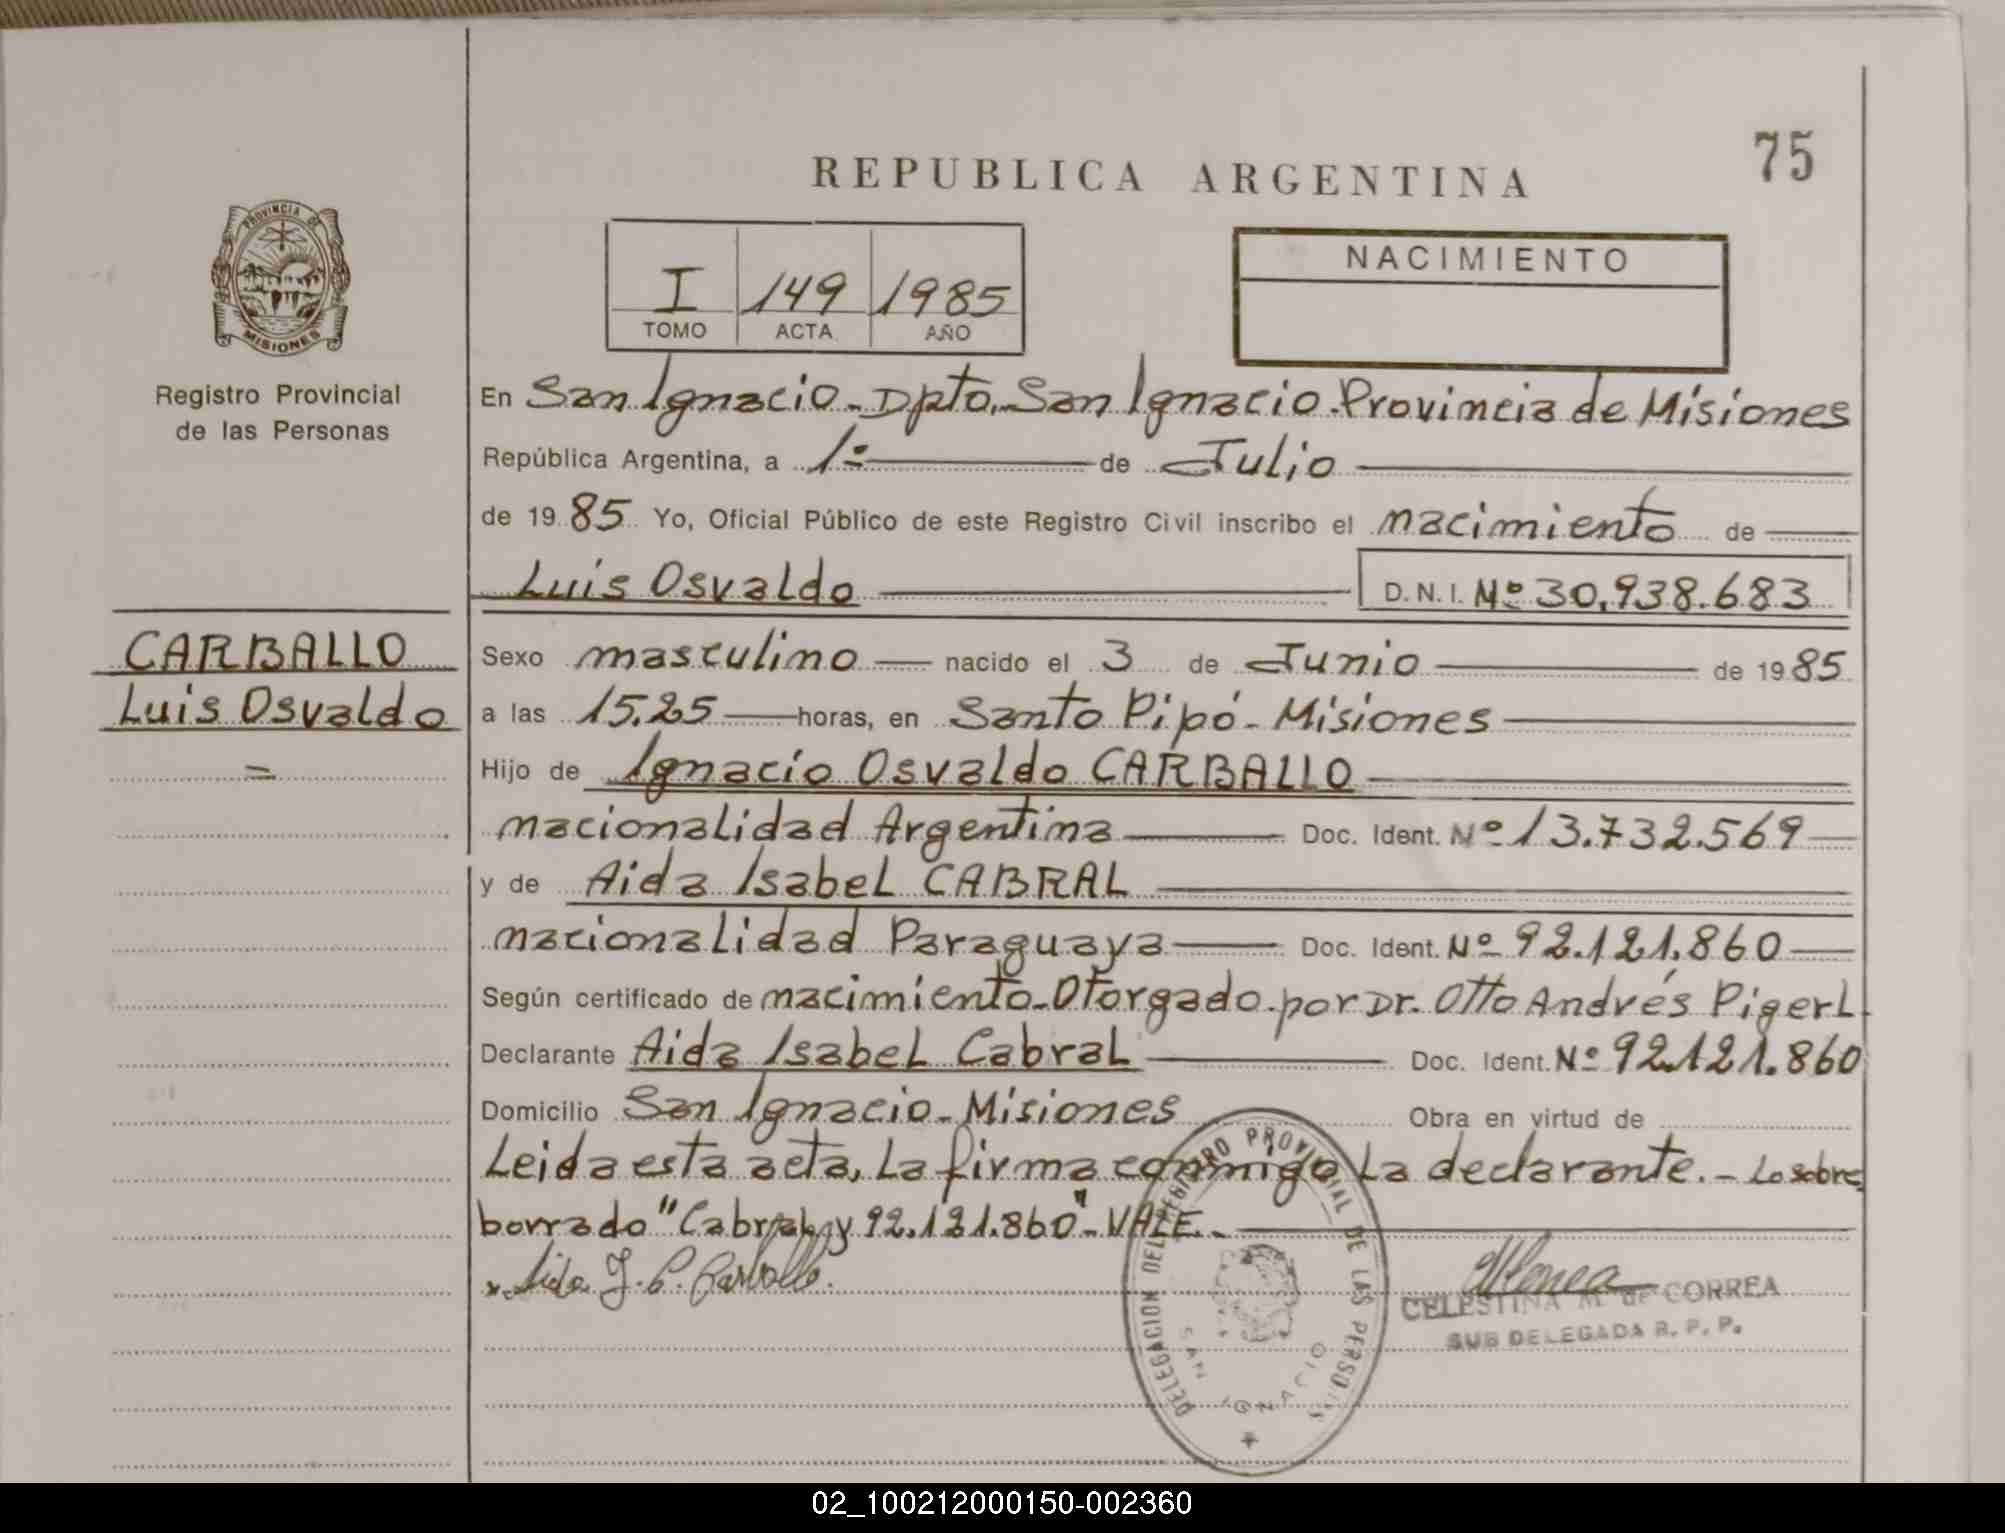 75
REPUBLICA ARGENTINA
PROVINCIA DE
MISIONES
Registro Provincial
de las Personas
I 149 1985
TOMO ACTA AÑO
NACIMIENTO
En San Ignacio - Dpto. San Ignacio - Provincia de Misiones
República Argentina, a 1º de Julio
de 1985 Yo, Oficial Público de este Registro Civil inscribo el nacimiento de
Luis Osvaldo D.N.I. Nº 30.938.683
CARBALLO
Luis Osvaldo
=
Sexo masculino nacido el 3 de Junio de 1985
a las 15.25 horas, en Santo Pipó - Misiones
Hijo de Ignacio Osvaldo CARBALLO
nacionalidad Argentina Doc. Ident. Nº 13.732.569
y de Aida Isabel CABRAL
nacionalidad Paraguaya Doc. Ident. Nº 92.121.860
Según certificado de nacimiento - Otorgado por Dr. Otto Andrés Pigerl.
Declarante Aida Isabel Cabral Doc. Ident. Nº 92.121.860
Domicilio San Ignacio - Misiones Obra en virtud de
Leida esta acta, la firma conmigo la declarante. - Lo sobre
borrado "Cabral y 92.121.860" - VALE.
Aida I. C. Carballo.
CELESTINA M. de CORREA
SUB DELEGADA R. P. P.
DELEGACION DEL REGISTRO PROVINCIAL DE LAS PERSONAS
SAN IGNACIO
02_100212000150-002360